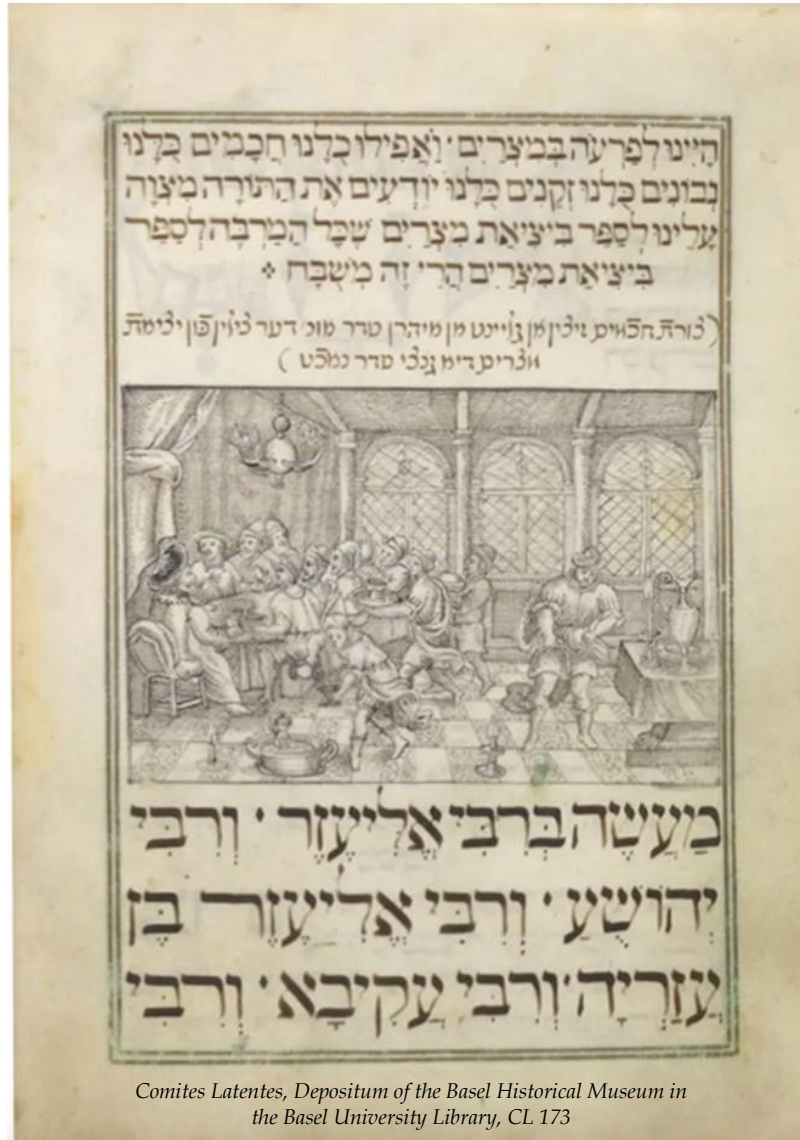 הָיִינוּ לְפַרְעֹה בְּמִצְרַיִם · וַאֲפִילוּ כֻלָּנוּ חֲכָמִים כֻּלָּנוּ
נְבוֹנִים כֻּלָּנוּ זְקֵנִים כֻּלָּנוּ יוֹדְעִים אֶת הַתּוֹרָה מִצְוָה
עָלֵינוּ לְסַפֵּר בִּיצִיאַת מִצְרַיִם שֶׁכָּל הַמַּרְבֶּה לְסַפֵּר
בִּיצִיאַת מִצְרַיִם הֲרֵי זֶה מְשֻׁבָּח
צורת חכמים סדר דער יציאת
מצרים סדר
מַעֲשֶׂה בְּרִבִּי אֱלִיעֶזֶר · וְרִבִּי
יְהוֹשֻׁעַ · וְרִבִּי אֱלִיעֶזֶר בֶּן
עֲזַרְיָה · וְרִבִּי עֲקִיבָא · וְרִבִּי
Comites Latentes, Depositum of the Basel Historical Museum in
the Basel University Library, CL 173